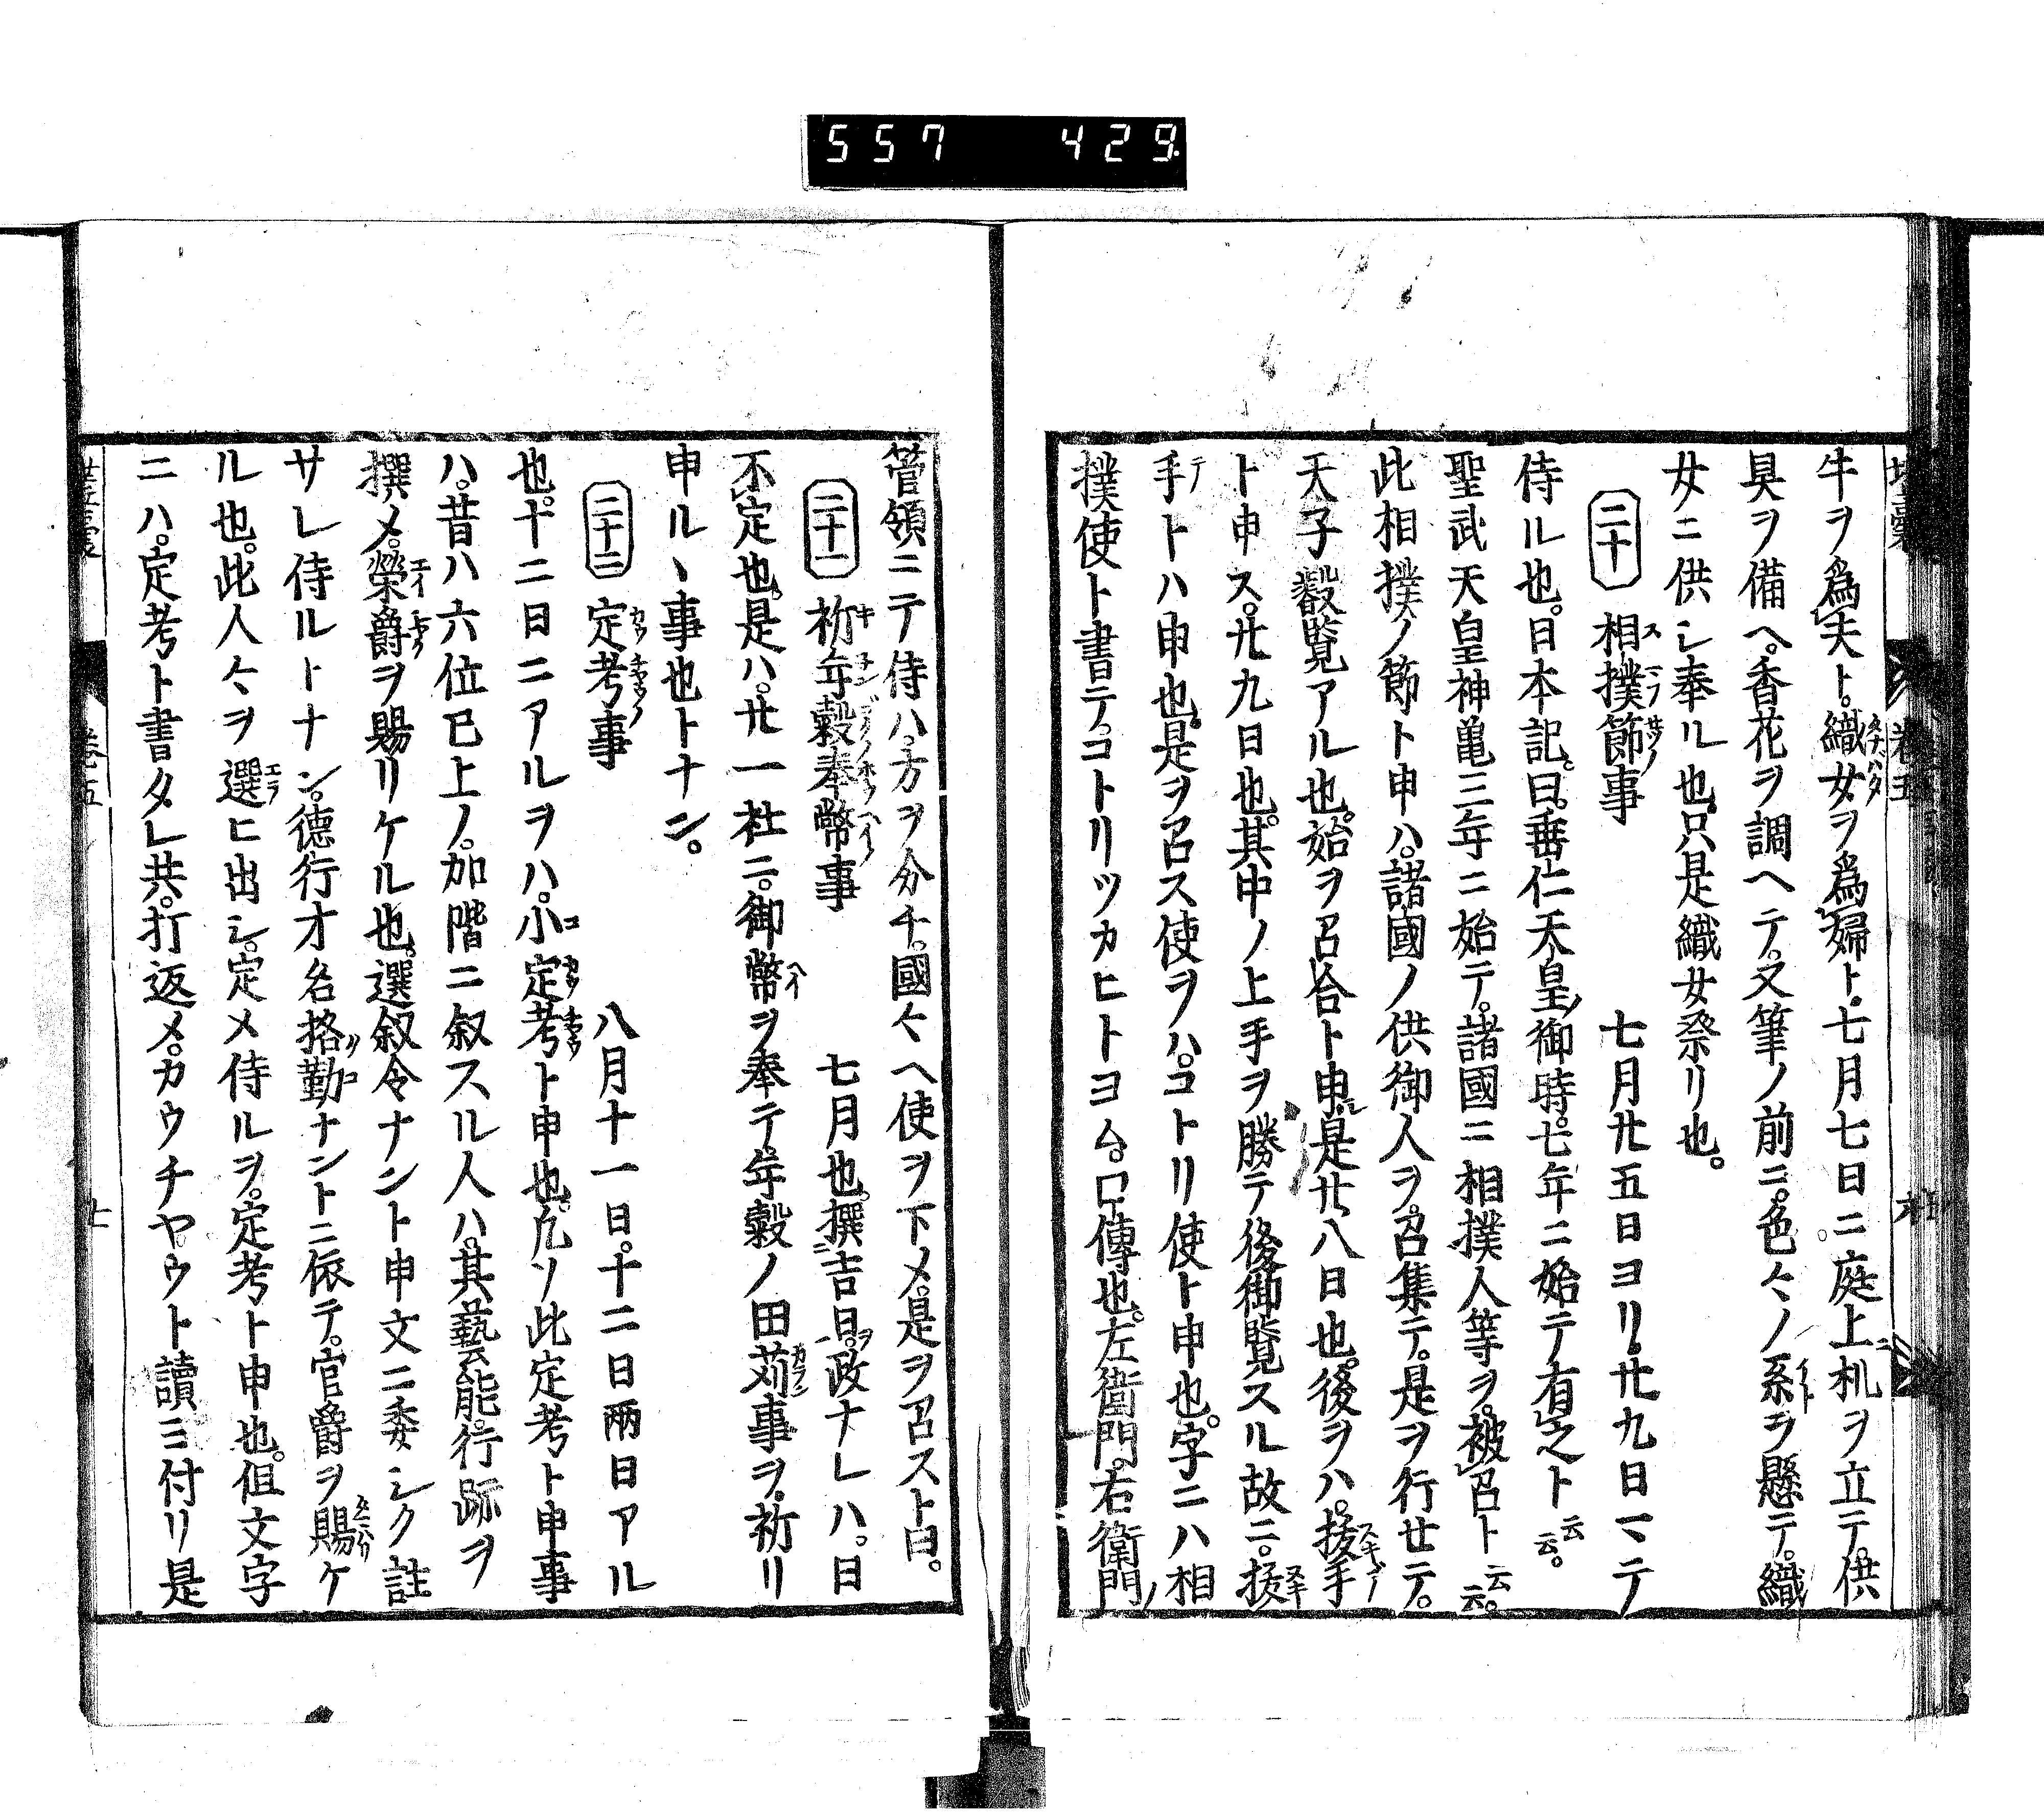 557 429.
牛ヲ爲夫ト。織女ヲ爲婦ト。七月七日ニ庭上ニ机ヲ立テ。供
具ヲ備ヘ。香花ヲ調ヘテ。又筆ノ前ニ。色々ノ糸ヲ懸テ。織
女ニ供シ奉ル也。只是織女祭リ也。
二十 相撲節事 七月廿五日ヨリ。廿九日マテ
侍ル也。日本記曰。垂仁天皇ノ御時。七年ニ始テ有之ト云云。
聖武天皇神亀三年ニ始テ。諸國ニ相撲人等ヲ。被召ト云云。
此相撲ノ節ト申ハ。諸國ノ供御人ヲ。召集テ。是ヲ行世テ。
天子叡覧アル也。始ヲ召合ト申。是廿八日也。後ヲハ。援手
ト申ス。廿九日也。其中ノ上手ヲ勝テ後御覧スル故ニ。援
手トハ申也。是ヲ召ス使ヲハ。コトリ使ト申也。字ニハ相
撲使ト書テ。コトリツカヒトヨム。口傳也。左衛門。右衛門ノ
管領ニテ侍ハ。方ヲ分チ。國々ヘ使ヲ下メ。是ヲ召スト曰。
二十一 祈年穀奉幣事 七月也。撰吉日。ヲ政ナレハ。日
不定也。是ハ。廿一社ニ。御幣ヲ奉テ。年穀ノ田苅事ヲ。祈リ
申ルヽ事也トナン。
二十二 定考事 八月十一日。十二日兩日アル
也。十二日ニアルヲハ。小定考ト申也。凡ソ此定考ト申事
ハ。昔ハ六位已上ノ。加階ニ叙スル人ハ。其藝能行跡ヲ
撰メ。榮爵ヲ賜リケル也。選叙令ナント申文ニ委シク註
サレ侍ルトナン。德行才名挌勤ナントニ依テ。官爵ヲ賜ケ
ル也。此人々ヲ選ヒ出シ。定メ侍ルヲ。定考ト申也。但文字
ニハ。定考ト書タレ共。打返メ。カウチヤウト讀ミ付リ是
卷五